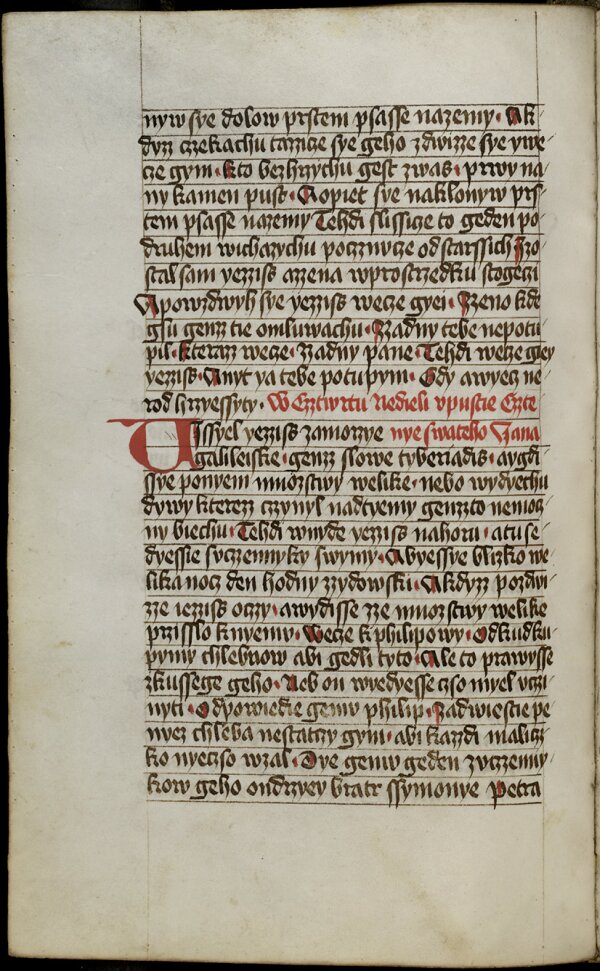 nyw sye dolow prstem psasse nazemy. Ak-
dyz czekachu tazicze sye geho zdwize sye ywe-
cze gym. kto bezhrzychu gest zwas. prwy na-
ny kamen pust. Aopiet sye naklonyw prs-
tem psasse nazemy Tehdi slissicze to geden po-
druhem wichazychu pocznucze od starssich Izo-
stal sam yezziss azena wprostrzedku stogeczi
Apowzdwyh sye yezziss wecze gyei. Zzeno kde
gsu genz tie omluwachu. Zzadny tebe nepotu-
pil. kteraz wecze. Zzadny pane. Tehdi wecze gyey
yezziss. Anyt ya tebe potupym. Gdy awyecz ne-
rod hrzyessyty. W Cztwrtu Nedieli vpustie Czte
Uissyel yezziss zamorzye nye swateho Jana
galileiskie. genz slowe tyberiadis. aygdi-
ssye ponyem mnozstwy welike. nebo wydyechu
dywy kterez czynyl nadtyemy genzto nemocz-
ny biechu. Tehdi wnyde yezziss nahoru. atu se-
dyessie syczennyky swymy. Abyessye blizko we-
lika nocz den hodny zydowski. Akdyz pozdwi-
zze iezziss oczy. awydisse zze mnozstwy welike
przisslo knyemu. Wecze k philipowy. Odkudku-
pymy chlebuow abi gedli tyto. Ale to prawysse
zkussege geho. Neb on wyedyesse czso myel vczi-
nyti. Odpowiedie gemu philip. Zadwiestie pe-
nyez chleba nestatczy gym. abi kazdi malicz-
ko nyeczso wzal. Dye gemu geden zuczenny-
kow geho ondrzyey bratr ssymonye Petra